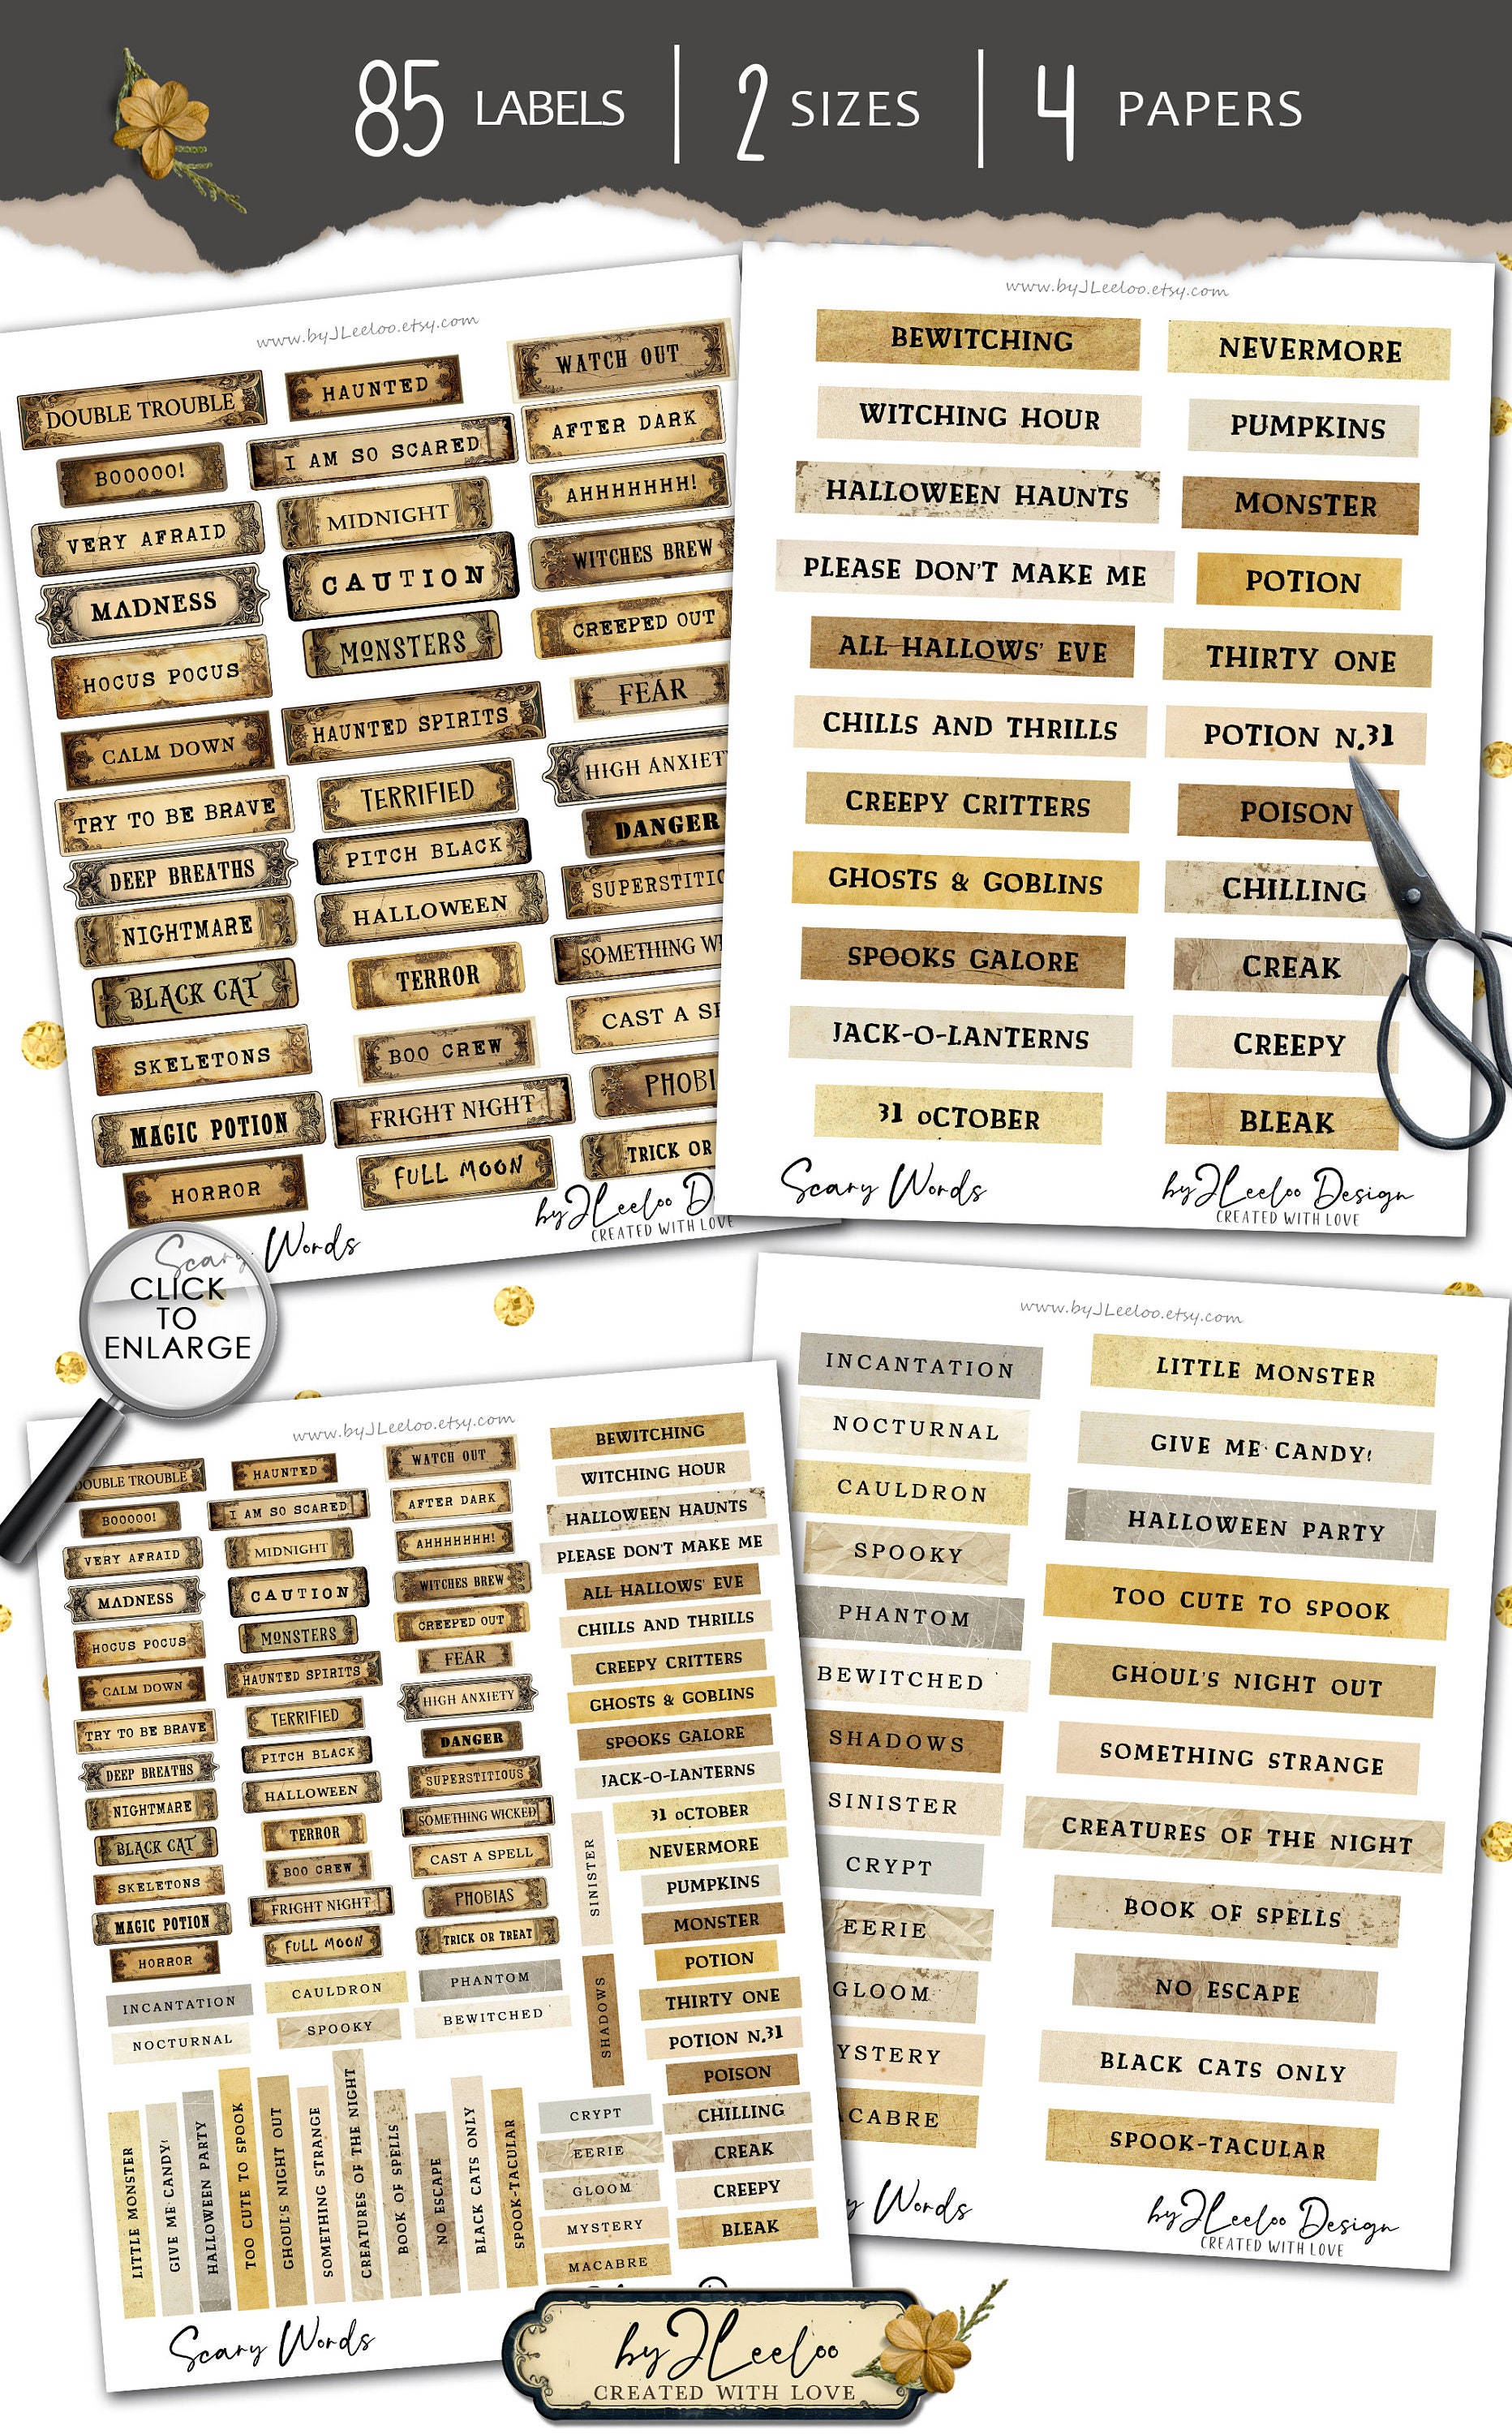 85 LABELS | 2 SIZES | 4 PAPERS
www.byJLeeloo.etsy.com
DOUBLE TROUBLE
HAUNTED
WATCH OUT
BOOOOO!
I AM SO SCARED
AFTER DARK
VERY AFRAID
MIDNIGHT
AHHHHHHH!
MADNESS
CAUTION
WITCHES BREW
HOCUS POCUS
MONSTERS
CREEPED OUT
CALM DOWN
HAUNTED SPIRITS
FEAR
TRY TO BE BRAVE
TERRIFIED
HIGH ANXIET
DEEP BREATHS
PITCH BLACK
DANGER
NIGHTMARE
HALLOWEEN
SUPERSTITIO
BLACK CAT
TERROR
SOMETHING WI
SKELETONS
BOO CREW
CAST A SP
MAGIC POTION
FRIGHT NIGHT
PHOBI
HORROR
FULL MOON
TRICK OR
Scary Words
byJLeeloo D
CREATED WITH LOVE
www.byJLeeloo.etsy.com
BEWITCHING
NEVERMORE
WITCHING HOUR
PUMPKINS
HALLOWEEN HAUNTS
MONSTER
PLEASE DON'T MAKE ME
POTION
ALL HALLOWS' EVE
THIRTY ONE
CHILLS AND THRILLS
POTION N.31
CREEPY CRITTERS
POISON
GHOSTS & GOBLINS
CHILLING
SPOOKS GALORE
CREAK
JACK-O-LANTERNS
CREEPY
31 OCTOBER
BLEAK
Scary Words
byJLeeloo Design
CREATED WITH LOVE
CLICK
TO
ENLARGE
www.byJLeeloo.etsy.com
DOUBLE TROUBLE
HAUNTED
WATCH OUT
BOOOOO!
I AM SO SCARED
AFTER DARK
VERY AFRAID
MIDNIGHT
AHHHHHHH!
MADNESS
CAUTION
WITCHES BREW
HOCUS POCUS
MONSTERS
CREEPED OUT
CALM DOWN
HAUNTED SPIRITS
FEAR
TRY TO BE BRAVE
TERRIFIED
HIGH ANXIETY
DEEP BREATHS
PITCH BLACK
DANGER
NIGHTMARE
HALLOWEEN
SUPERSTITIOUS
BLACK CAT
TERROR
SOMETHING WICKED
SKELETONS
BOO CREW
CAST A SPELL
MAGIC POTION
FRIGHT NIGHT
PHOBIAS
HORROR
FULL MOON
TRICK OR TREAT
INCANTATION
CAULDRON
PHANTOM
NOCTURNAL
SPOOKY
BEWITCHED
BEWITCHING
WITCHING HOUR
HALLOWEEN HAUNTS
PLEASE DON'T MAKE ME
ALL HALLOWS' EVE
CHILLS AND THRILLS
CREEPY CRITTERS
GHOSTS & GOBLINS
SPOOKS GALORE
JACK-O-LANTERNS
31 OCTOBER
NEVERMORE
PUMPKINS
MONSTER
POTION
THIRTY ONE
POTION N.31
POISON
CHILLING
CREAK
CREEPY
BLEAK
SINISTER
SHADOWS
CRYPT
EERIE
GLOOM
MYSTERY
MACABRE
LITTLE MONSTER
GIVE ME CANDY!
HALLOWEEN PARTY
TOO CUTE TO SPOOK
GHOUL'S NIGHT OUT
SOMETHING STRANGE
CREATURES OF THE NIGHT
BOOK OF SPELLS
NO ESCAPE
BLACK CATS ONLY
SPOOK-TACULAR
Scary Words
www.byJLeeloo.etsy.com
INCANTATION
LITTLE MONSTER
NOCTURNAL
GIVE ME CANDY!
CAULDRON
HALLOWEEN PARTY
SPOOKY
TOO CUTE TO SPOOK
PHANTOM
GHOUL'S NIGHT OUT
BEWITCHED
SOMETHING STRANGE
SHADOWS
CREATURES OF THE NIGHT
SINISTER
BOOK OF SPELLS
CRYPT
NO ESCAPE
EERIE
BLACK CATS ONLY
GLOOM
SPOOK-TACULAR
YSTERY
ACABRE
y Words
byJLeeloo Design
CREATED WITH LOVE
byJLeeloo
CREATED WITH LOVE